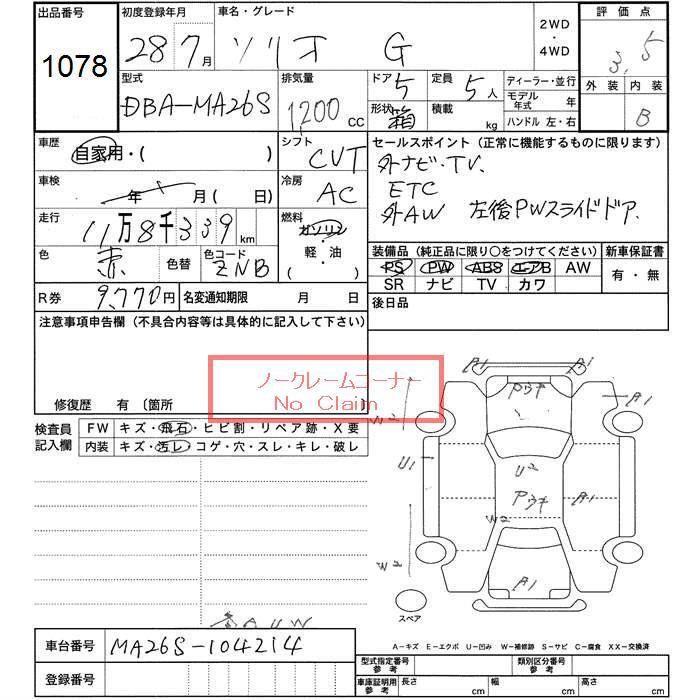 出品番号 初度登録年月 車名・グレード 2WD・4WD 評価点
1078 28 7月 ソリオ G 3.5
型式 排気量 ドア 5 定員 5人 ディーラー・並行 外装 内装
DBA-MA26S 1200 CC 形状 箱 積載 kg モデル年式 年 B
ハンドル 左・右
車歴 自家用・( ) シフト CVT セールスポイント (正常に機能するものに限ります)
外ナビ・TV.
車検 年 月(日) 冷房 AC ETC
外AW 左後PWスライドドア.
走行 11万8千339km 燃料 ガソリン・軽・油・( )
色 赤 色替 色コード ZNB 装備品 (純正品に限り○をつけてください) 新車保証書
PS PW ABS エアB AW 有・無
SR ナビ TV カワ
R券 9,770円 名変通知期限 月 日 後日品
注意事項申告欄 (不具合内容等は具体的に記入して下さい)
ノークレームコーナー
No Claim
修復歴 有 〔箇所
検査員記入欄 FW キズ・飛石・ヒビ割・リペア跡・X要
内装 キズ・汚レ・コゲ・穴・スレ・キレ・破レ
A1 A1
Pウキ
A1
W2
U1
U2
Pウキ A1
W2
W2
A1
スペア
車台番号 MA26S-104214
A-キズ E-エクボ U-凹み W-補修跡 S-サビ C-腐食 XX-交換済
登録番号
型式指定番号 参考 類別区分番号 参考
車庫証明用 参考 長さ cm 幅 cm 高さ cm